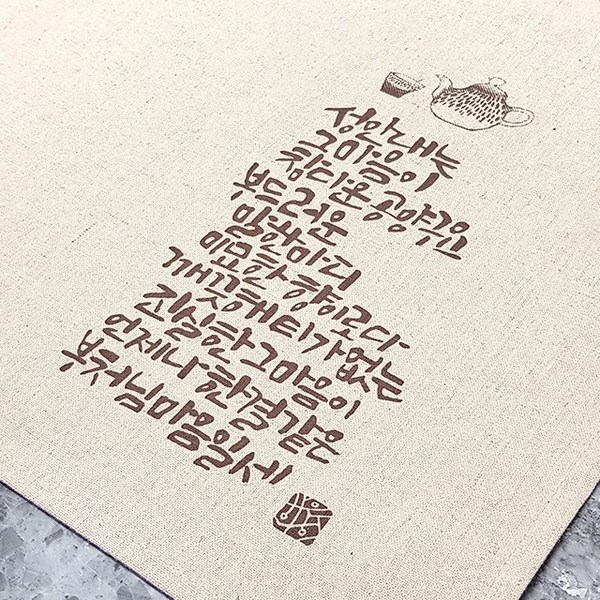 성안내는
그마음이
참다운 공양구요
부드러운
말한마디
미묘한 향이로다
깨끗해 티가없는
진실한 그마음이
언제나 한결같은
부처님 마음일세